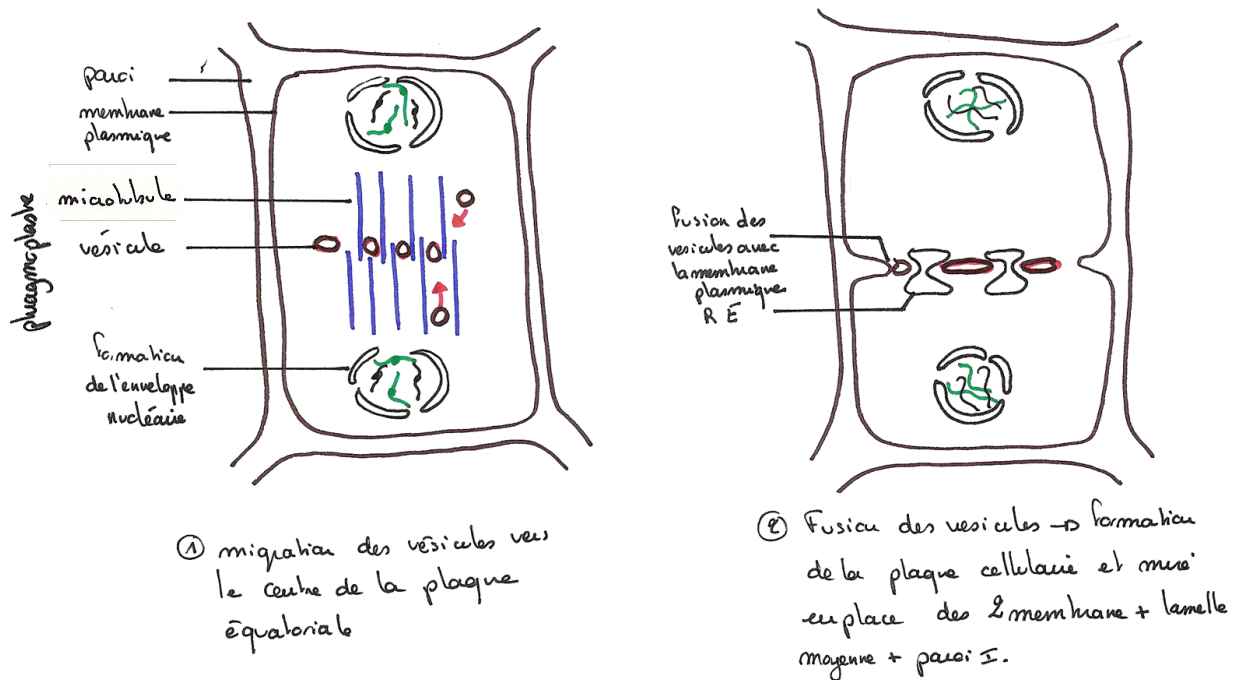 paroi
membrane
plasmique
microtubule
vésicule
phragmoplaste
formation
de l'enveloppe
nucléaire
① migration des vésicules vers
le centre de la plaque
équatoriale
fusion des
vesicules avec
la membrane
plasmiques
R E
② Fusion des vesicules → formation
de la plaque cellulaire et mise
en place des 2 membrane + lamelle
moyenne + paroi I.